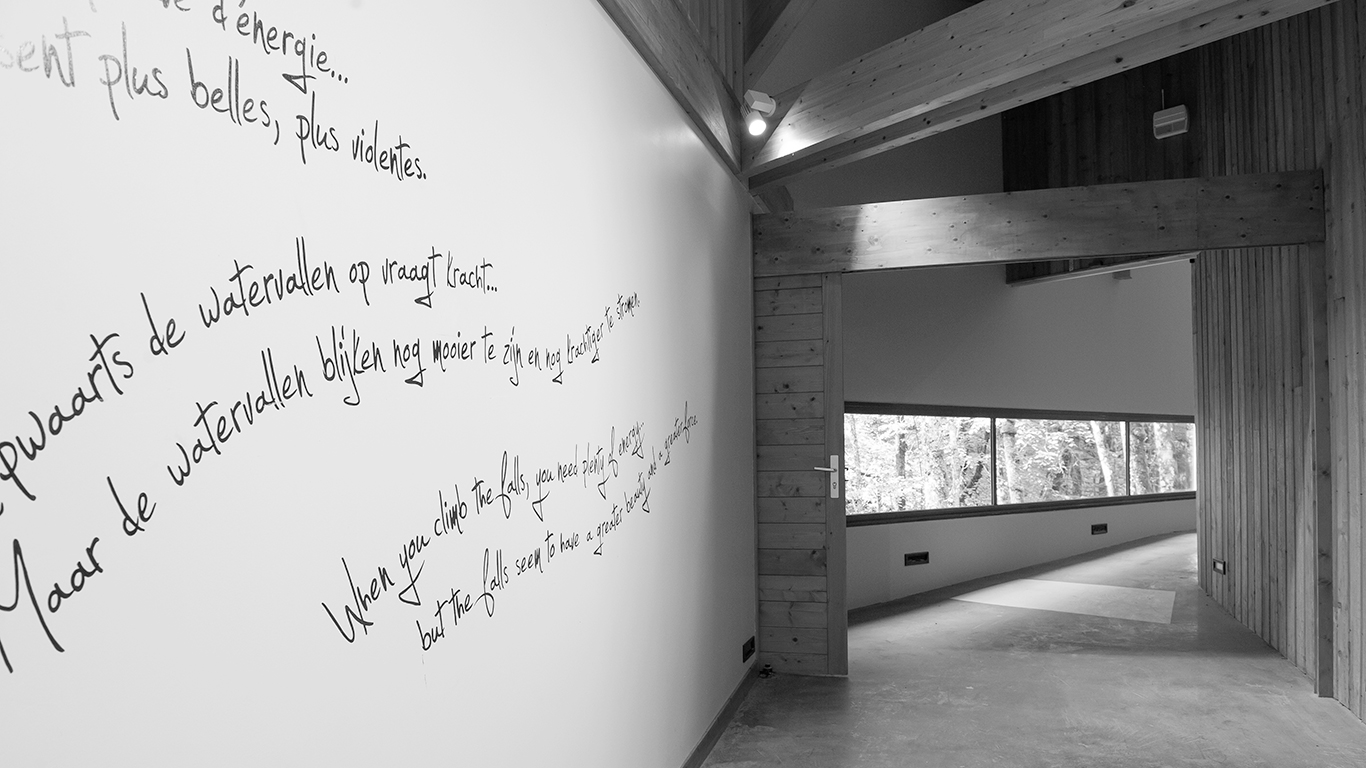 d'énergie...
plus belles, plus violentes.
de watervallen op vraagt kracht...
Maar de watervallen blijken nog mooier te zijn en nog krachtiger te stromen.
When you climb the falls, you need plenty of energy...
but the falls seem to have a greater beauty and a greater force.